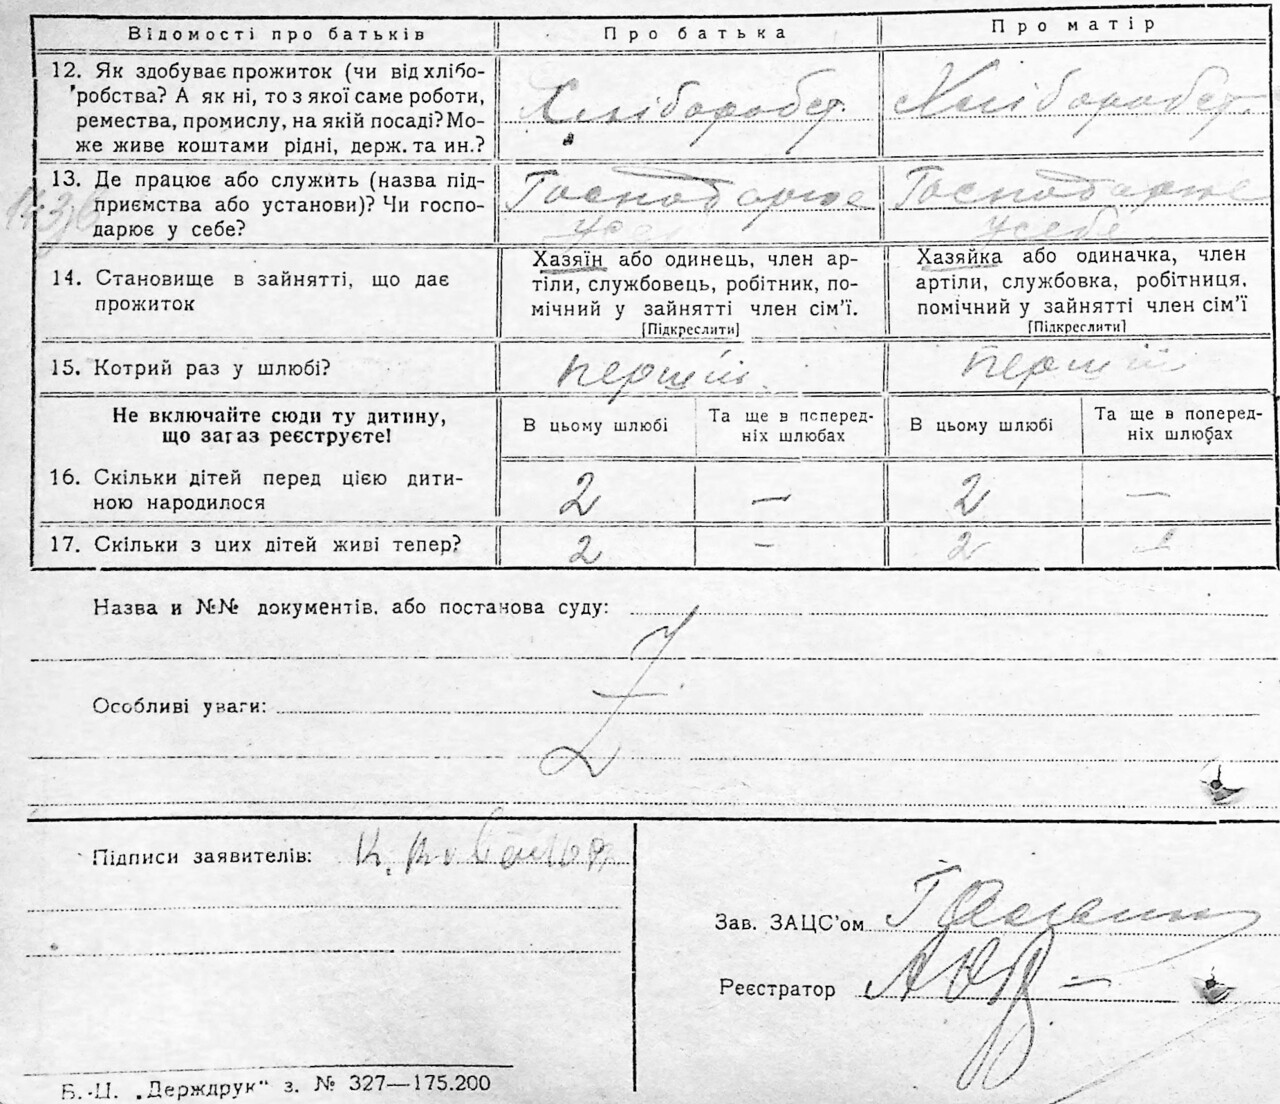 Відомості про батьків Про батька Про матір
12. Як здобуває прожиток (чи від хлібо-
робства? А як ні, то з якої саме роботи,
ремества, промислу, на якій посаді? Мо-
же живе коштами рідні, держ. та ин.?
Хлібороброст. Хліборобст.
13. Де працює або служить (назва під-
приємства або установи)? Чи госпо-
дарює у себе?
Господарює Господарює
у себе
14. Становище в зайнятті, що дає
прожиток
Хазяїн або одинець, член ар-
тіли, службовець, робітник, по-
мічний у зайнятті член сім'ї.
[Підкреслити]
Хазяйка або одиначка, член
артіли, службовка, робітниця,
помічний у зайнятті член сім'ї
[Підкреслити]
15. Котрий раз у шлюбі? перший перший
Не включайте сюди ту дитину,
що зараз реєструєте!
В цьому шлюбі
Та ще в поперед-
ніх шлюбах
В цьому шлюбі
Та ще в поперед-
ніх шлюбах
16. Скільки дітей перед цією дити-
ною народилося
2 — 2 —
17. Скільки з цих дітей живі тепер? 2 – 2
Назва и №№ документів, або постанова суду:
Z
Особливі уваги:
Підписи заявителів:
Зав. ЗАЦС'ом
Реєстратор
Б.-Ц. „Держдрук" з. № 327—175.200